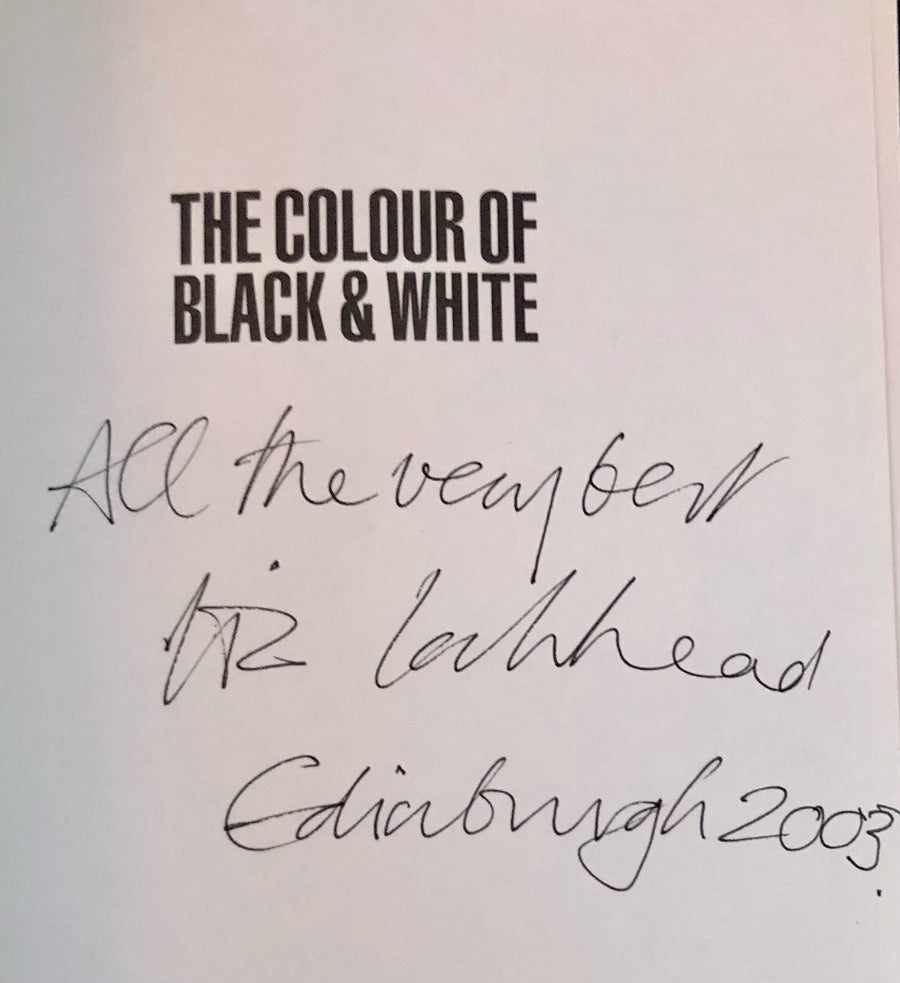 THE COLOUR OF
BLACK & WHITE
All the very best
Liz Lochhead
Edinburgh 2003.